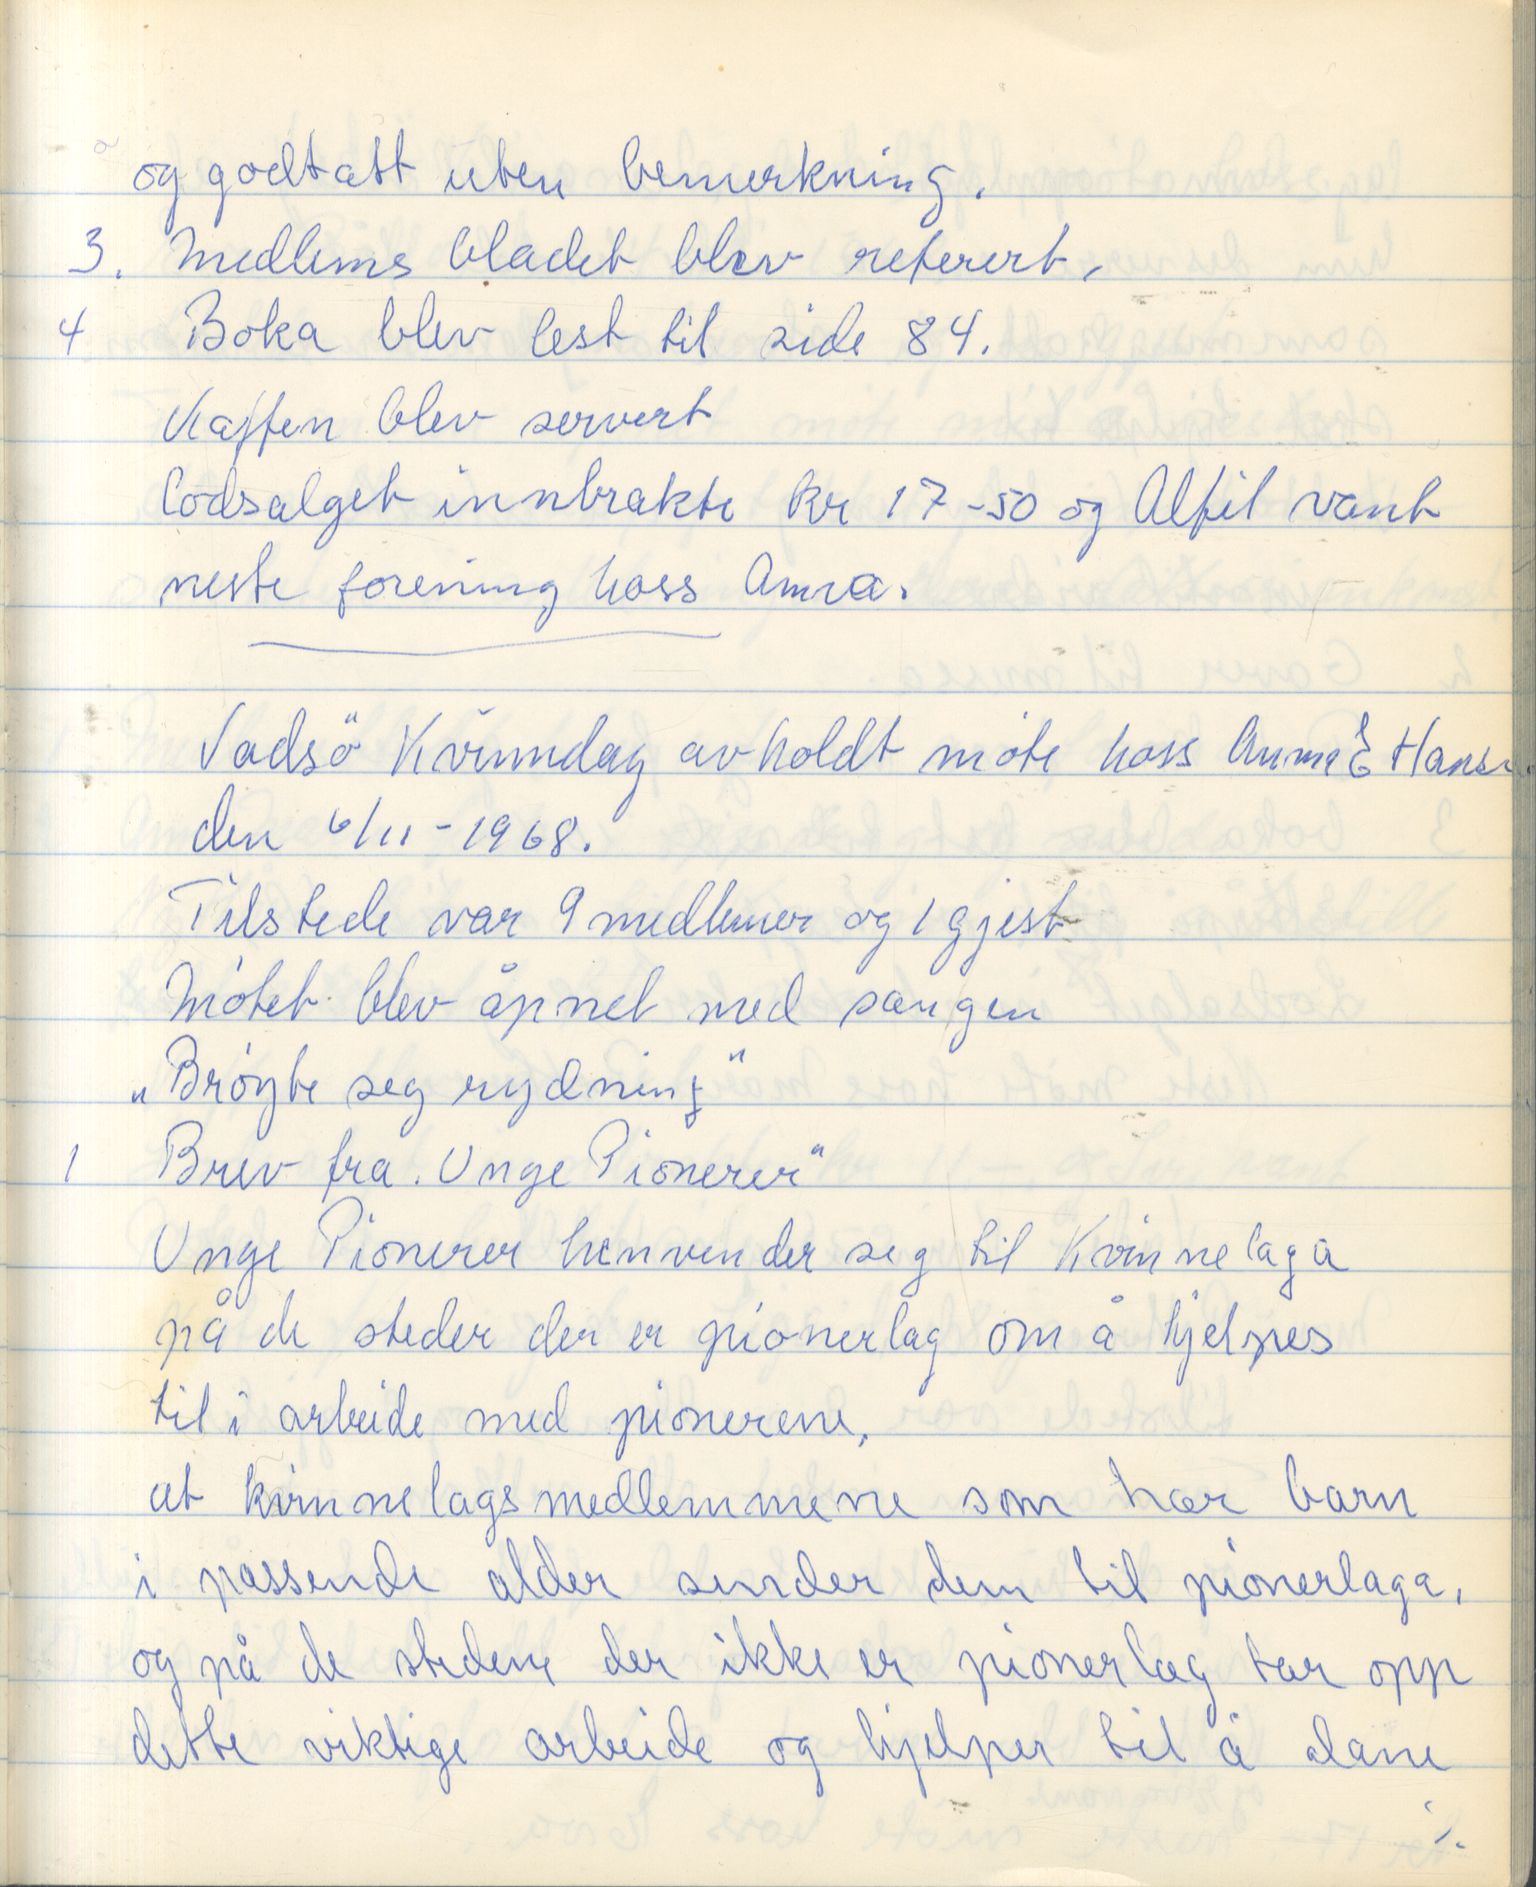 og godtatt uten bemerkning.
3. Medlems bladet blev referert.
4 Boka blev lest til side 84.
Kaffen blev servert
Lodsalget innbrakte kr 17-50 og Alfil vant
neste forening hoss Anna.
Vadsö Kvinnelag avholdt möte hoss Anna E Hansen
den 6/11-1968.
Tilstede var 9 medlemer og 1 gjest
Mötet blev åpnet med sangen
„Bröyte seg rydning"
1 Brev fra „Unge Pionerer"
Unge Pionerer henvender seg til Kvinnelaga
på de steder der er pionerlag om å hjelpes
til i arbeide med pionerene,
at kvinnelagsmedlemmene som har barn
i passende alder sender dem til pionerlaga,
og på de stedene der ikke er pionerlag tar opp
dette viktige arbeide og hjelper til å dane
./.